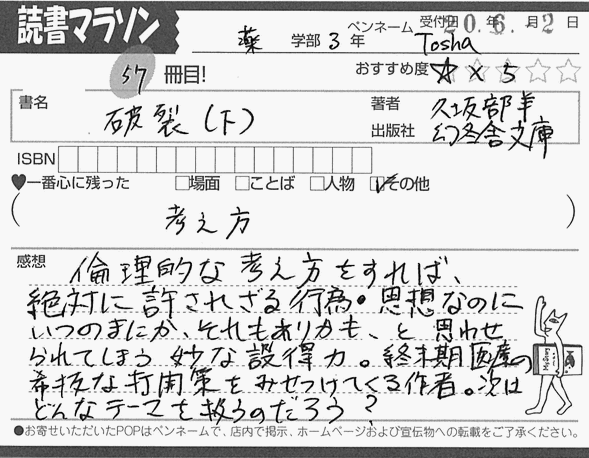 読書マラソン
薬 学部 3 年
ペンネーム Tosha
受付日 20年6月2日
57 冊目!
おすすめ度 ☆ × 5
書名 破裂(下)
著者 久坂部羊
出版社 幻冬舎文庫
ISBN
♥一番心に残った □場面 □ことば □人物 ☑その他
( 考え方 )
感想 倫理的な考え方をすれば、
絶対に許されざる行為・思想なのに
いつのまにか、それもありかも、と思わせ
られてしまう妙な説得力。終末期医療の
奇抜な打開策をみせつけてくる作者。次は
どんなテーマを扱うのだろう?
●お寄せいただいたPOPはペンネームで、店内で掲示、ホームページおよび宣伝物への転載をご了承ください。